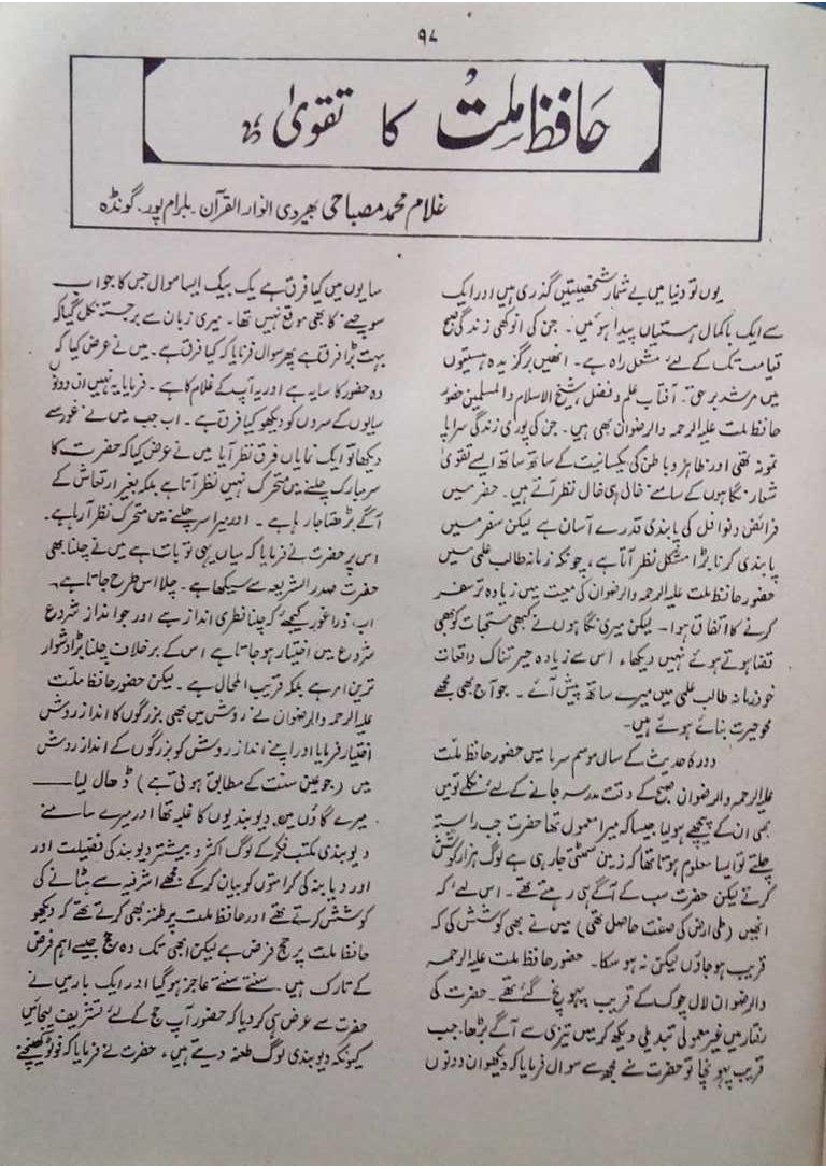 ۹۸
حافظ ملتؒ کا تقویٰ
غلام محمد مصباحی بھیردی انوار القرآن۔ بلرام پور۔ گونڈہ
یوں تو دنیا میں بے شمار شخصیتیں گذری ہیں اور ایک
سے ایک باکمال ہستیاں پیدا ہوئیں۔ جن کی انوکھی زندگی صبح
قیامت تک کے لئے مشعل راہ ہے۔ انھیں برگزیدہ ہستیوں
میں مرشد برحق۔ آفتاب علم و فضل، شیخ الاسلام والمسلمین حضور
حافظ ملت علیہ الرحمہ والرضوان بھی ہیں۔ جن کی پوری زندگی سراپا
نمونہ تھی اور ظاہر و باطن کی یکسانیت کے ساتھ ساتھ ایسے تقویٰ
شعار نگاہوں کے سامنے خال ہی خال نظر آتے ہیں۔ حضر میں
فرائض و نوافل کی پابندی قدرے آسان ہے لیکن سفر میں
پابندی کرنا بڑا مشکل نظر آتا ہے، چونکہ زمانہ طالب علمی میں
حضور حافظ ملت علیہ الرحمہ والرضوان کی معیت میں زیادہ تر سفر
کرنے کا اتفاق ہوا۔ لیکن میری نگاہوں نے کبھی مستحبات کو بھی
قضا ہوتے ہوئے نہیں دیکھا، اس سے زیادہ حیرتناک واقعات
خود زمانہ طالب علمی میں میرے ساتھ پیش آئے۔ جو آج بھی مجھے
محو حیرت بنائے ہوئے ہیں۔
دورۂ حدیث کے سال موسم سرما میں حضور حافظ ملت
علیہ الرحمہ والرضوان صبح کے وقت مدرسہ جانے کے لئے نکلے تو میں
بھی ان کے پیچھے ہولیا جیسا کہ میرا معمول تھا حضرت جب راستہ
چلتے تو ایسا معلوم ہوتا تھا کہ زمین سمٹتی جا رہی ہے لوگ ہزار کوشش
کرتے لیکن حضرت سب کے آگے ہی رہتے تھے۔ اس لئے کہ
انھیں (طی ارض کی صفت حاصل تھی) میں نے بھی کوشش کی کہ
قریب ہو جاؤں لیکن نہ ہو سکا۔ حضور حافظ ملت علیہ الرحمہ
والرضوان لال چوک کے قریب پہونچ گئے تھے۔ حضرت کی
رفتار میں غیر معمولی تبدیلی دیکھ کر میں تیزی سے آگے بڑھا۔ جب
قریب پہونچا تو حضرت نے مجھ سے سوال فرمایا کہ دیکھو ان دونوں
سایوں میں کیا فرق ہے یک بیک ایسا سوال جس کا جواب
سوچنے کا بھی موقع نہیں تھا۔ میری زبان سے برجستہ نکل گیا کہ
بہت بڑا فرق ہے پھر سوال فرمایا کہ کیا فرق ہے۔ میں نے عرض کیا کہ
وہ حضور کا سایہ ہے اور یہ آپ کے غلام کا ہے۔ فرمایا یہ نہیں ان دونوں
سایوں کے سروں کو دیکھو کیا فرق ہے۔ اب جب میں نے غور سے
دیکھا تو ایک نمایاں فرق نظر آیا میں نے عرض کیا کہ حضرت کا
سر مبارک چلنے میں متحرک نہیں نظر آتا ہے بلکہ بغیر ارتعاش کے
آگے بڑھتا جا رہا ہے۔ اور میرا سر چلنے میں متحرک نظر آ رہا ہے۔
اس پر حضرت نے فرمایا کہ میاں یہی تو بات ہے میں نے چلنا بھی
حضرت صدر الشریعہ سے سیکھا ہے۔ چلا اس طرح جاتا ہے۔
اب ذرا غور کیجئے کہ چلنا فطری انداز ہے اور جو انداز شروع
شروع میں اختیار ہو جاتا ہے اس کے برخلاف چلنا بڑا دشوار
ترین امر ہے بلکہ قریب المحال ہے۔ لیکن حضور حافظ ملت
علیہ الرحمہ والرضوان نے روش میں بھی بزرگوں کا انداز روش
اختیار فرمایا اور اپنے انداز روش کو بزرگوں کے انداز روش
میں (جو عین سنت کے مطابق ہوتی ہے) ڈھال لیا۔
میرے گاؤں میں دیوبندیوں کا غلبہ تھا اور میرے سامنے
دیوبندی مکتب فکر کے لوگ اکثر و بیشتر دیوبند کی فضیلت اور
اور دیابنہ کی کرامتوں کو بیان کر کے مجھے اشرفیہ سے ہٹانے کی
کوشش کرتے تھے اور حافظ ملت پر طنز بھی کرتے تھے کہ دیکھو
حافظ ملت پر حج فرض ہے لیکن ابھی تک وہ حج جیسے اہم فرض
کے تارک ہیں۔ سنتے سنتے عاجز ہو گیا اور ایک بار میں نے
حضرت سے عرض ہی کر دیا کہ حضور آپ حج کے لئے تشریف لیجائیں
کیونکہ دیوبندی لوگ طعنہ دیتے ہیں، حضرت نے فرمایا کہ فوٹو کھینچنے